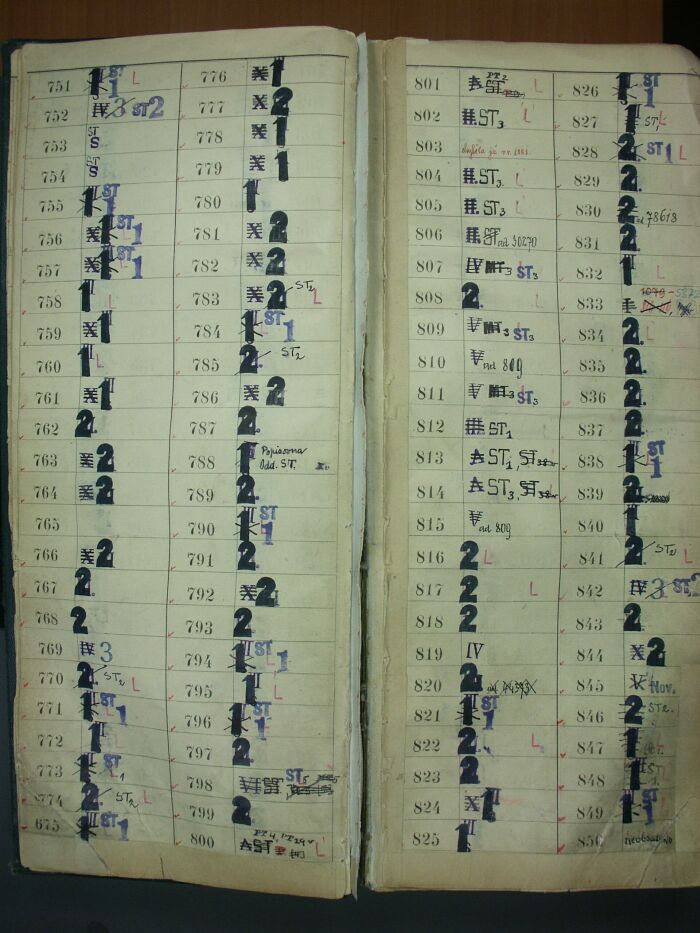 751 1 ST 1 L
752 IV 3 ST 2
753 ST S
754 ST S
755 1 ST 1
756 X 1 ST 1
757 X 1 ST 1
758 1 L
759 X 1
760 1 L
761 X 1
762 2.
763 X 2
764 X 2
765
766 X 2
767 2.
768 2
769 IV 3
770 2 ST2 L
771 1 ST 1
772 1 L
773 1 ST 1
774 2. ST2 L
675 1 ST 1
776 X 1
777 X 2
778 X 1
779 X 1
780 1
781 X 2
782 X 2
783 X 2 ST2 L
784 1 ST 1
785 2. ST2
786 X 2
787 2.
788 1 Popisona Odd. ST.
789 2.
790 1 ST 1
791 2.
792 X 2.
793 2.
794 1 ST 1
795 1 L
796 1 ST 1
797 2.
798 VI ST5
799 2.
800 A ST L
801 A ST PT2 L
802 II. ST3 L
803
804 II. ST3 L
805 II. ST3 L
806 II. ST ad 30270
807 IV MT3 ST3
808 2. L
809 V MT3 ST3
810 V ad 809
811 V MT3 ST3
812 III ST1
813 A ST1
814 A ST3
815 V ad 809
816 2 L
817 2 L
818 2
819 IV
820 2
821 1 ST 1
822 2. L
823 2
824 X 1
825 1
826 1 ST 1
827 1 ST1 L
828 2. ST 1 L
829 2.
830 2 ad 78618
831 2
832 1 L
833
834 2. L
835 2.
836 2.
837 2
838 1 ST 1
839 2.
840 1
841 2. ST2 L
842 IV 3 ST
843 2
844 X 2
845 V Nov.
846 2 ST2.
847 1
848 1 ST 1.
849 1 ST 1
850